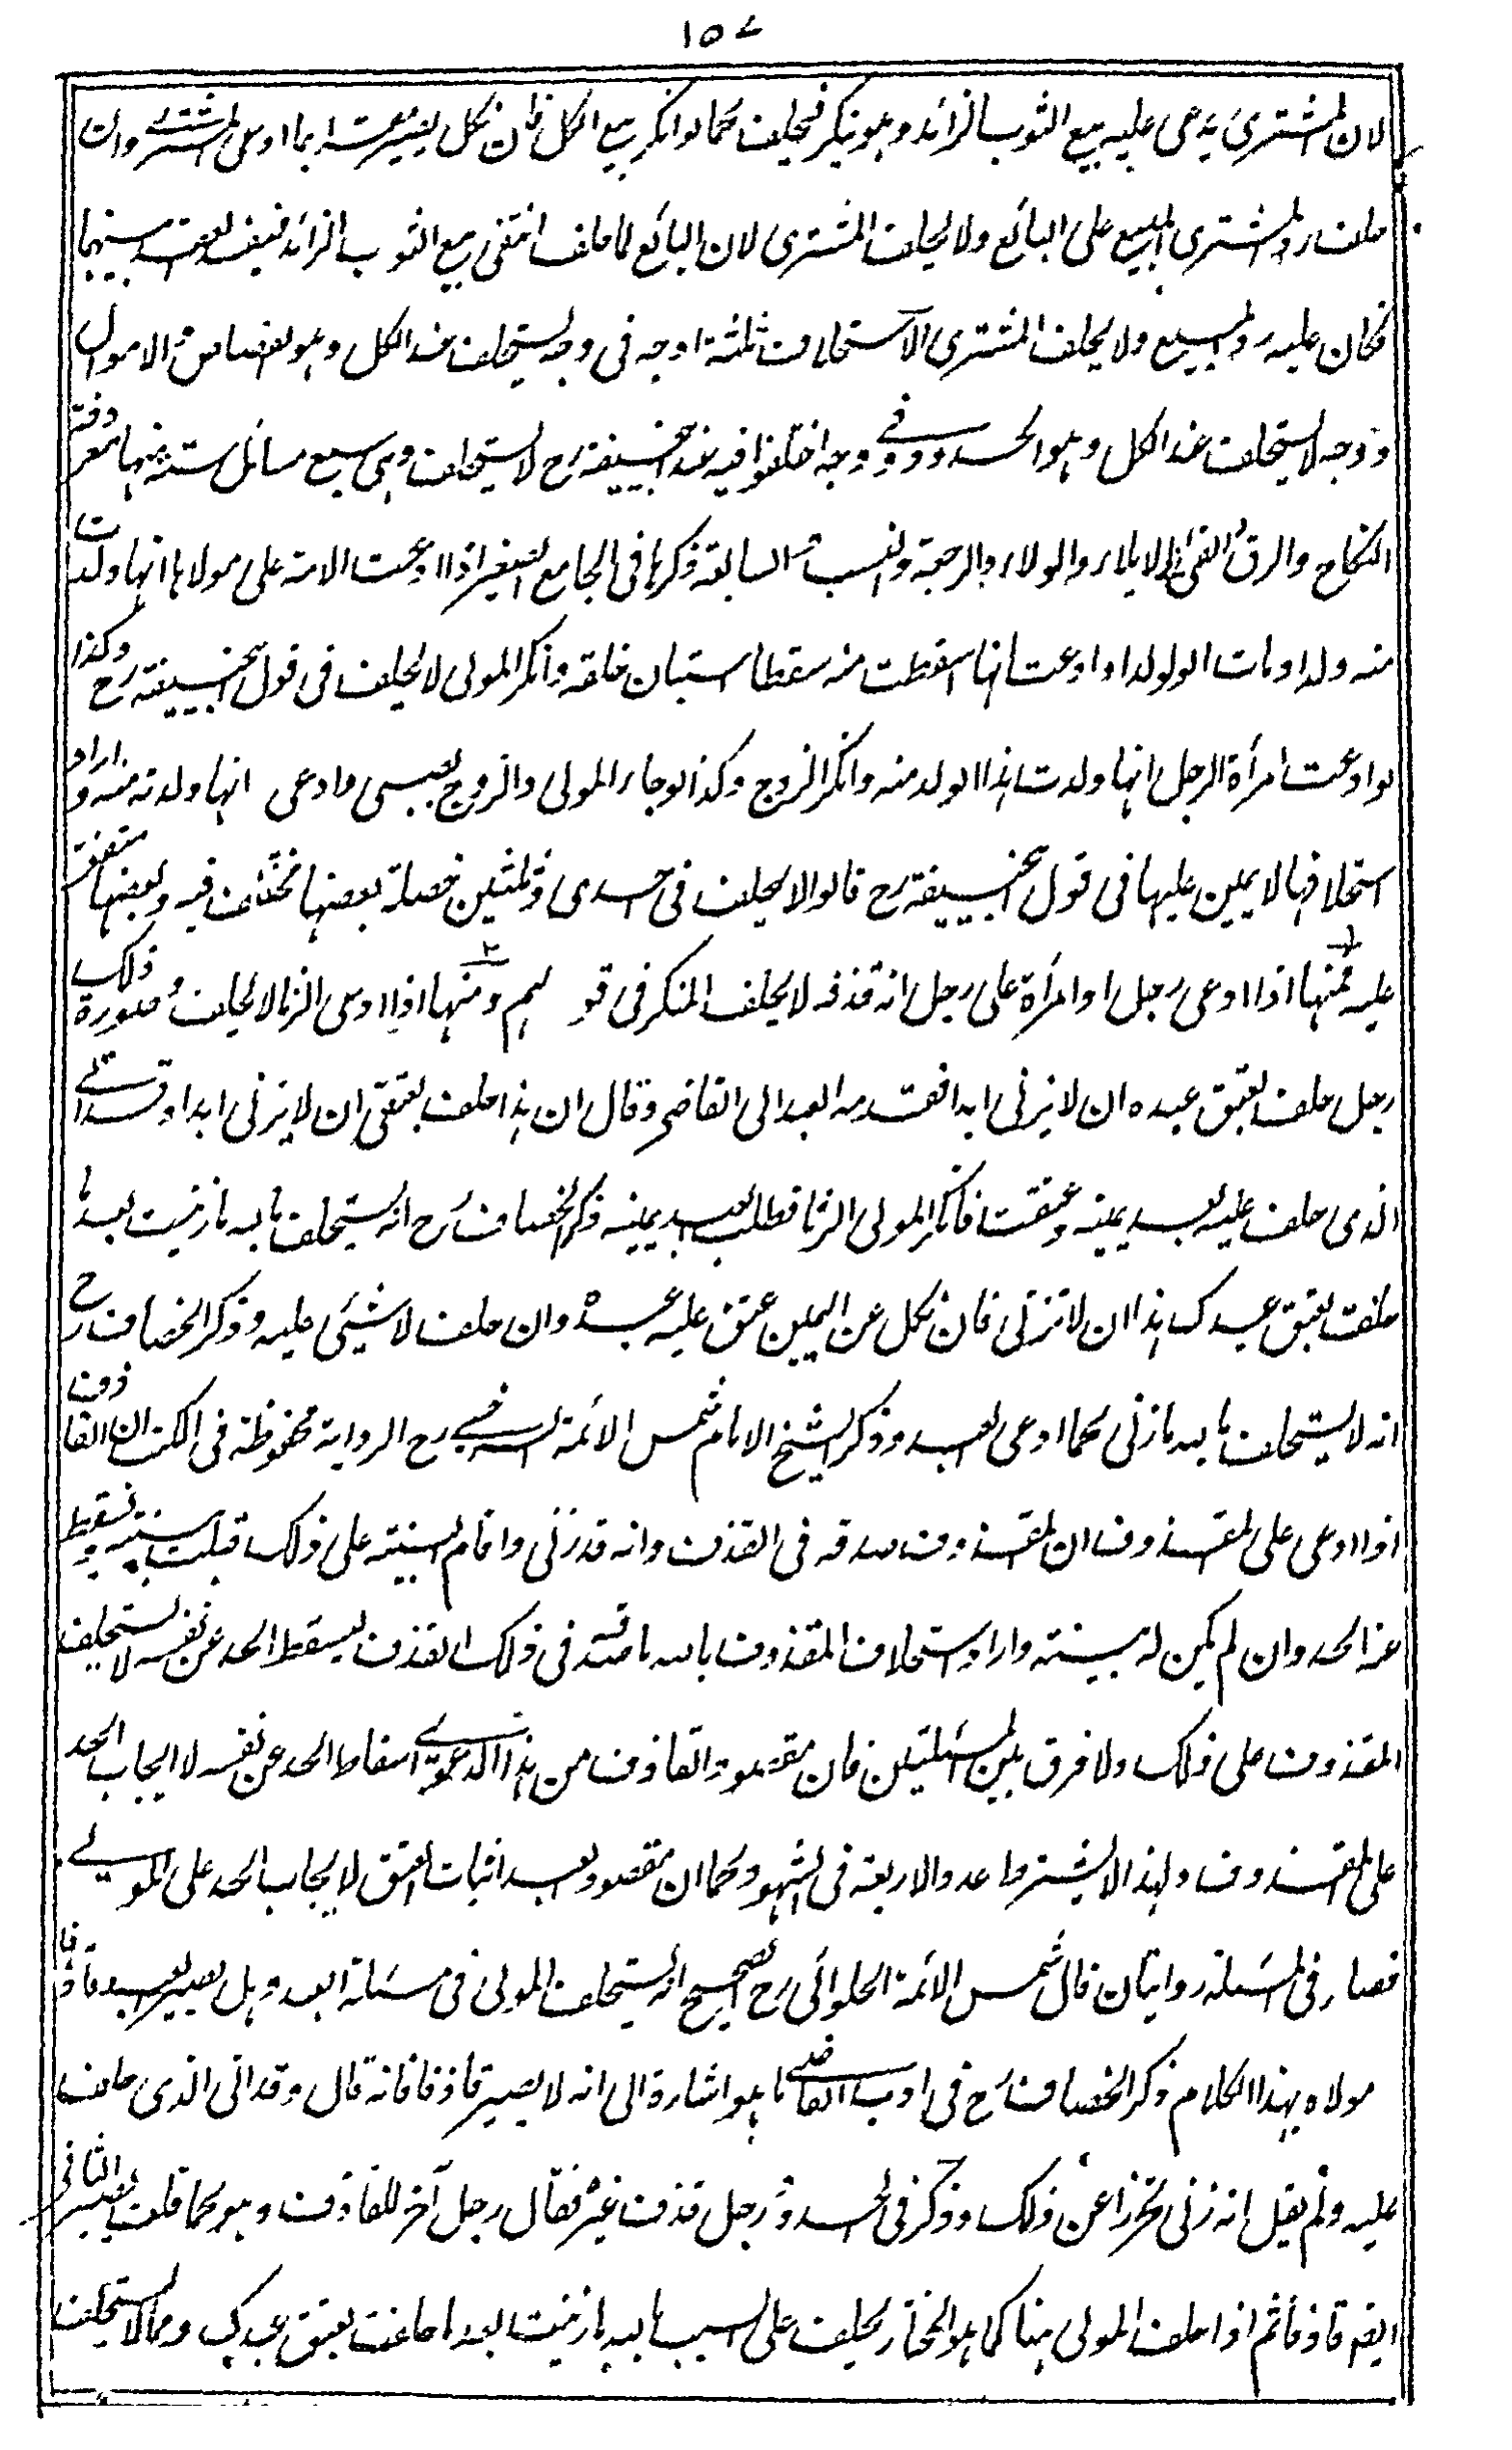 ١٥٧
لان المشترى يدعى عليه بيع الثوب الزائد وهو ينكر فيحلف كما لو انكر بيع الكل فان نكل يصير مقرا بما ادعى المشترى وان
حلف رد المشترى المبيع على البائع ولا يحلف المشترى لان البائع لما حلف انتفى بيع الثوب الزائد فيفسد العقد بينهما
فكان عليه رد المبيع ولا يحلف المشترى الاستحلاف ثلثة اوجه فى وجه يستحلف عند الكل وهو القصاص والاموال
ووجه لا يستحلف عند الكل وهو الحدود وفى وجه اختلفوا فيه عند ابيحنيفة رح لا يستحلف وهى سبع مسائل ستة منها معروفة
النكاح والرق والفئ فى الايلاء والولاء والرجعة والنسب والسابعة ذكرها فى الجامع الصغير اذا ادعت الامة على مولاها انها ولدت
منه ولدا ومات الولد او ادعت انها اسقطت منه سقطا استبان خلقه وانكر المولى لا يحلف فى قول ابيحنيفة رح وكذا
لو ادعت امرأة الرجل انها ولدت هذا الولد منه وانكر الزوج وكذا لو جاء المولى والزوج بصبى وادعى انها ولدته منه واراد
استحلافها لا يمين عليها فى قول ابيحنيفة رح قالوا لا يحلف فى احدى وثلثين خصلة بعضها مختلف فيه وبعضها متفق
عليه فمنها اذا ادعى رجل او امرأة على رجل انه قذفه لا يحلف المنكر فى قولهم ومنها اذا ادعى الزنا لا يحلف وصورة ذلك
رجل حلف بعتق عبده ان لا يزنى ابدا فقدمه العبد الى القاضى وقال ان هذا حلف بعتقى ان لا يزنى ابدا وقد اتى
الذى حلف عليه بعد يمينه وعتقت فانكر المولى الزنا فطلب العبد يمينه ذكر الخصاف رح انه يستحلف بالله ما زنيت بعد ما
حلفت بعتق عبدك هذا ان لا تزنى فان نكل عن اليمين عتق عليه عبده وان حلف لا شيئ عليه وذكر الخصاف رح
انه لا يستحلف بالله ما زنى كما ادعى العبد وذكر الشيخ الامام شمس الائمة السرخسى رح الرواية محفوظة فى الكتب ان القاذف
اذا ادعى على المقذوف ان المقذوف صدقه فى القذف وانه قد زنى واقام البينة على ذلك قبلت بينته ويسقط
عنه الحد وان لم يكن له بينة واراد استحلاف المقذوف بالله ما صدقه فى ذلك القذف ليسقط الحد عن نفسه لا يستحلف
المقذوف على ذلك ولا فرق بين المسئلتين فان مقصود القاذف من هذا الدعوى اسقاط الحد عن نفسه لا ايجاب الحد
على المقذوف ولهذا لا يشترط عدد الاربعة فى الشهود كما ان مقصود العبد اثبات العتق لا ايجاب الحد على المولى
فصار فى المسئلة روايتان قال شمس الائمة الحلوائى رح الصحيح انه يستحلف المولى فى مسئلة العبد وهل يصير العبد قاذفا
مولاه بهذا الكلام ذكر الخصاف رح فى ادب القاضى ما هو اشارة الى انه لا يصير قاذفا فانه قال وقد اتى الذى حلف
عليه ولم يقل انه زنى تحرزا عن ذلك وذكر فى الحدود رجل قذف غيره فقال رجل آخر للقاذف وهو كما قلت يصير الثانى
ايضا قاذفا ثم اذا حلف المولى هنا كما هو المختار يحلف على السبب بالله ما زنيت بعد ما حلفت بعتق عبدك ومما لا يستحلف